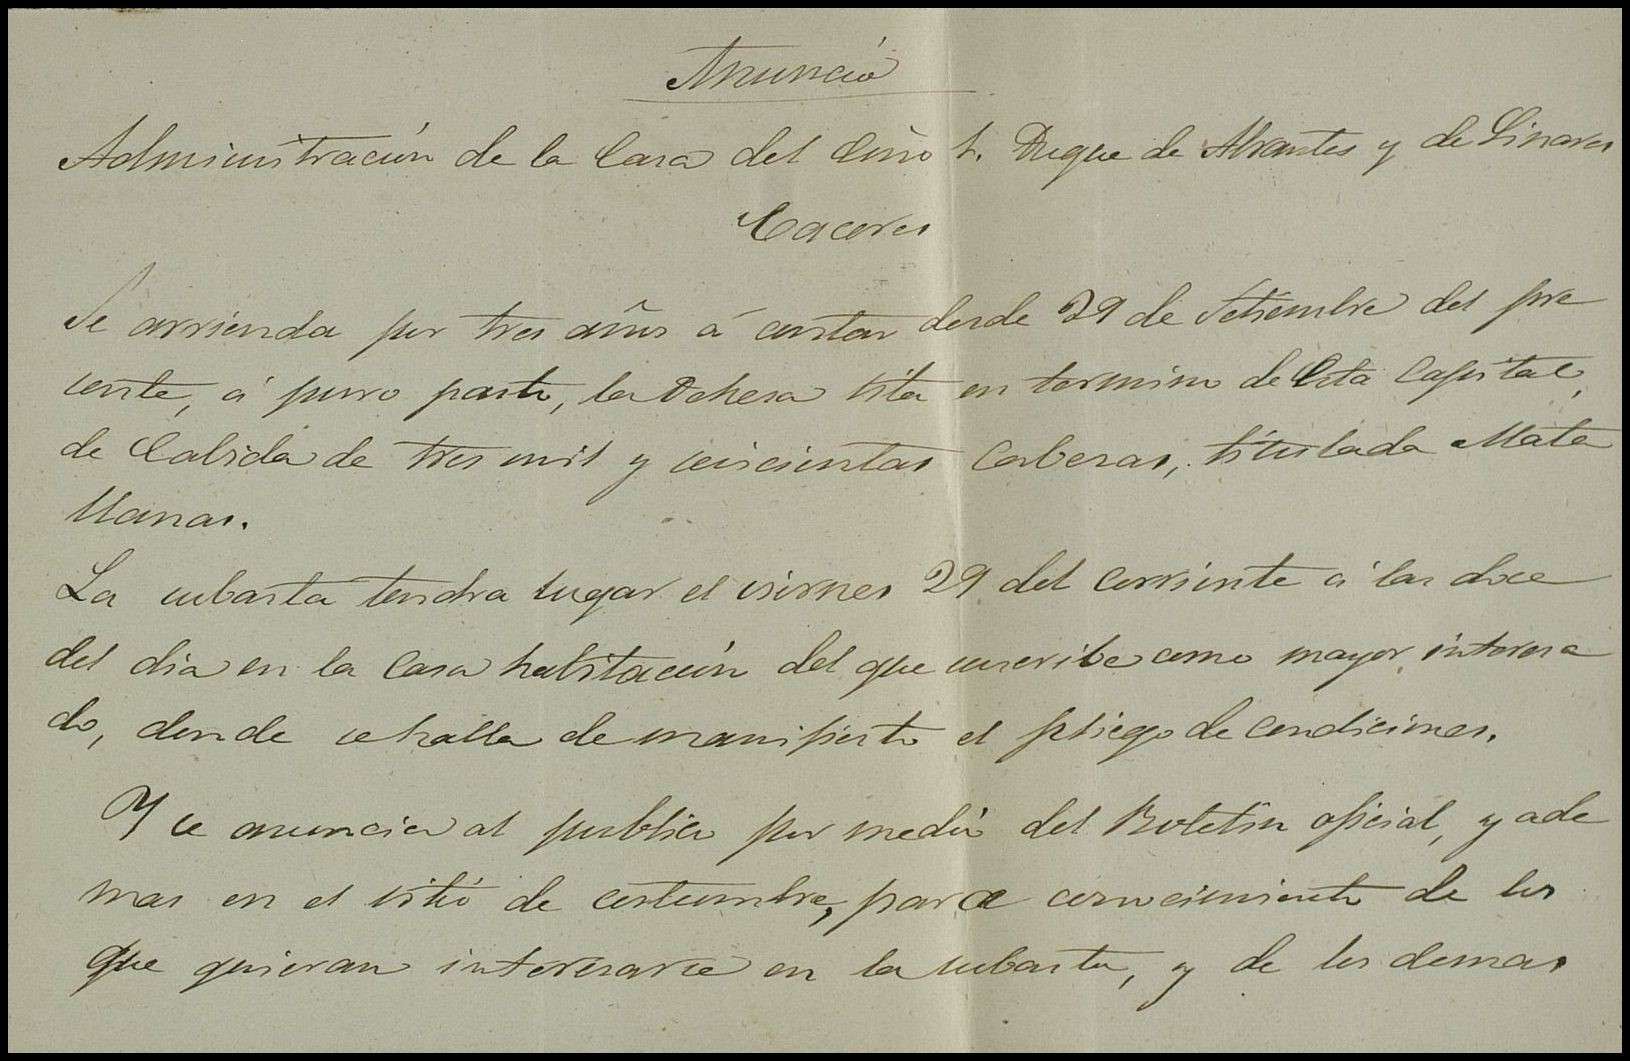 Anuncio
Administración de la Casa del Escmo S. Duque de Abrantes y de Linares
Caceres
Se arrienda por tres años á contar desde 29 de Setiembre del pre
sente, á puro pasto, la Dehesa sita en termino de esta Capital,
de Cabida de tres mil y seiscientas Cabezas, titulada Mata
llanas.
La subasta tendra lugar el viernes 29 del corriente á las doce
del dia en la Casa habitación del que suscribe como mayor interesa
do, donde se halla de manifiesto el pliego de condiciones.
Y se anuncia al publico por medio del Boletin oficial, y ade
mas en el sitio de costumbre, para conocimiento de los
que quieran interesarse en la subasta, y de los demas